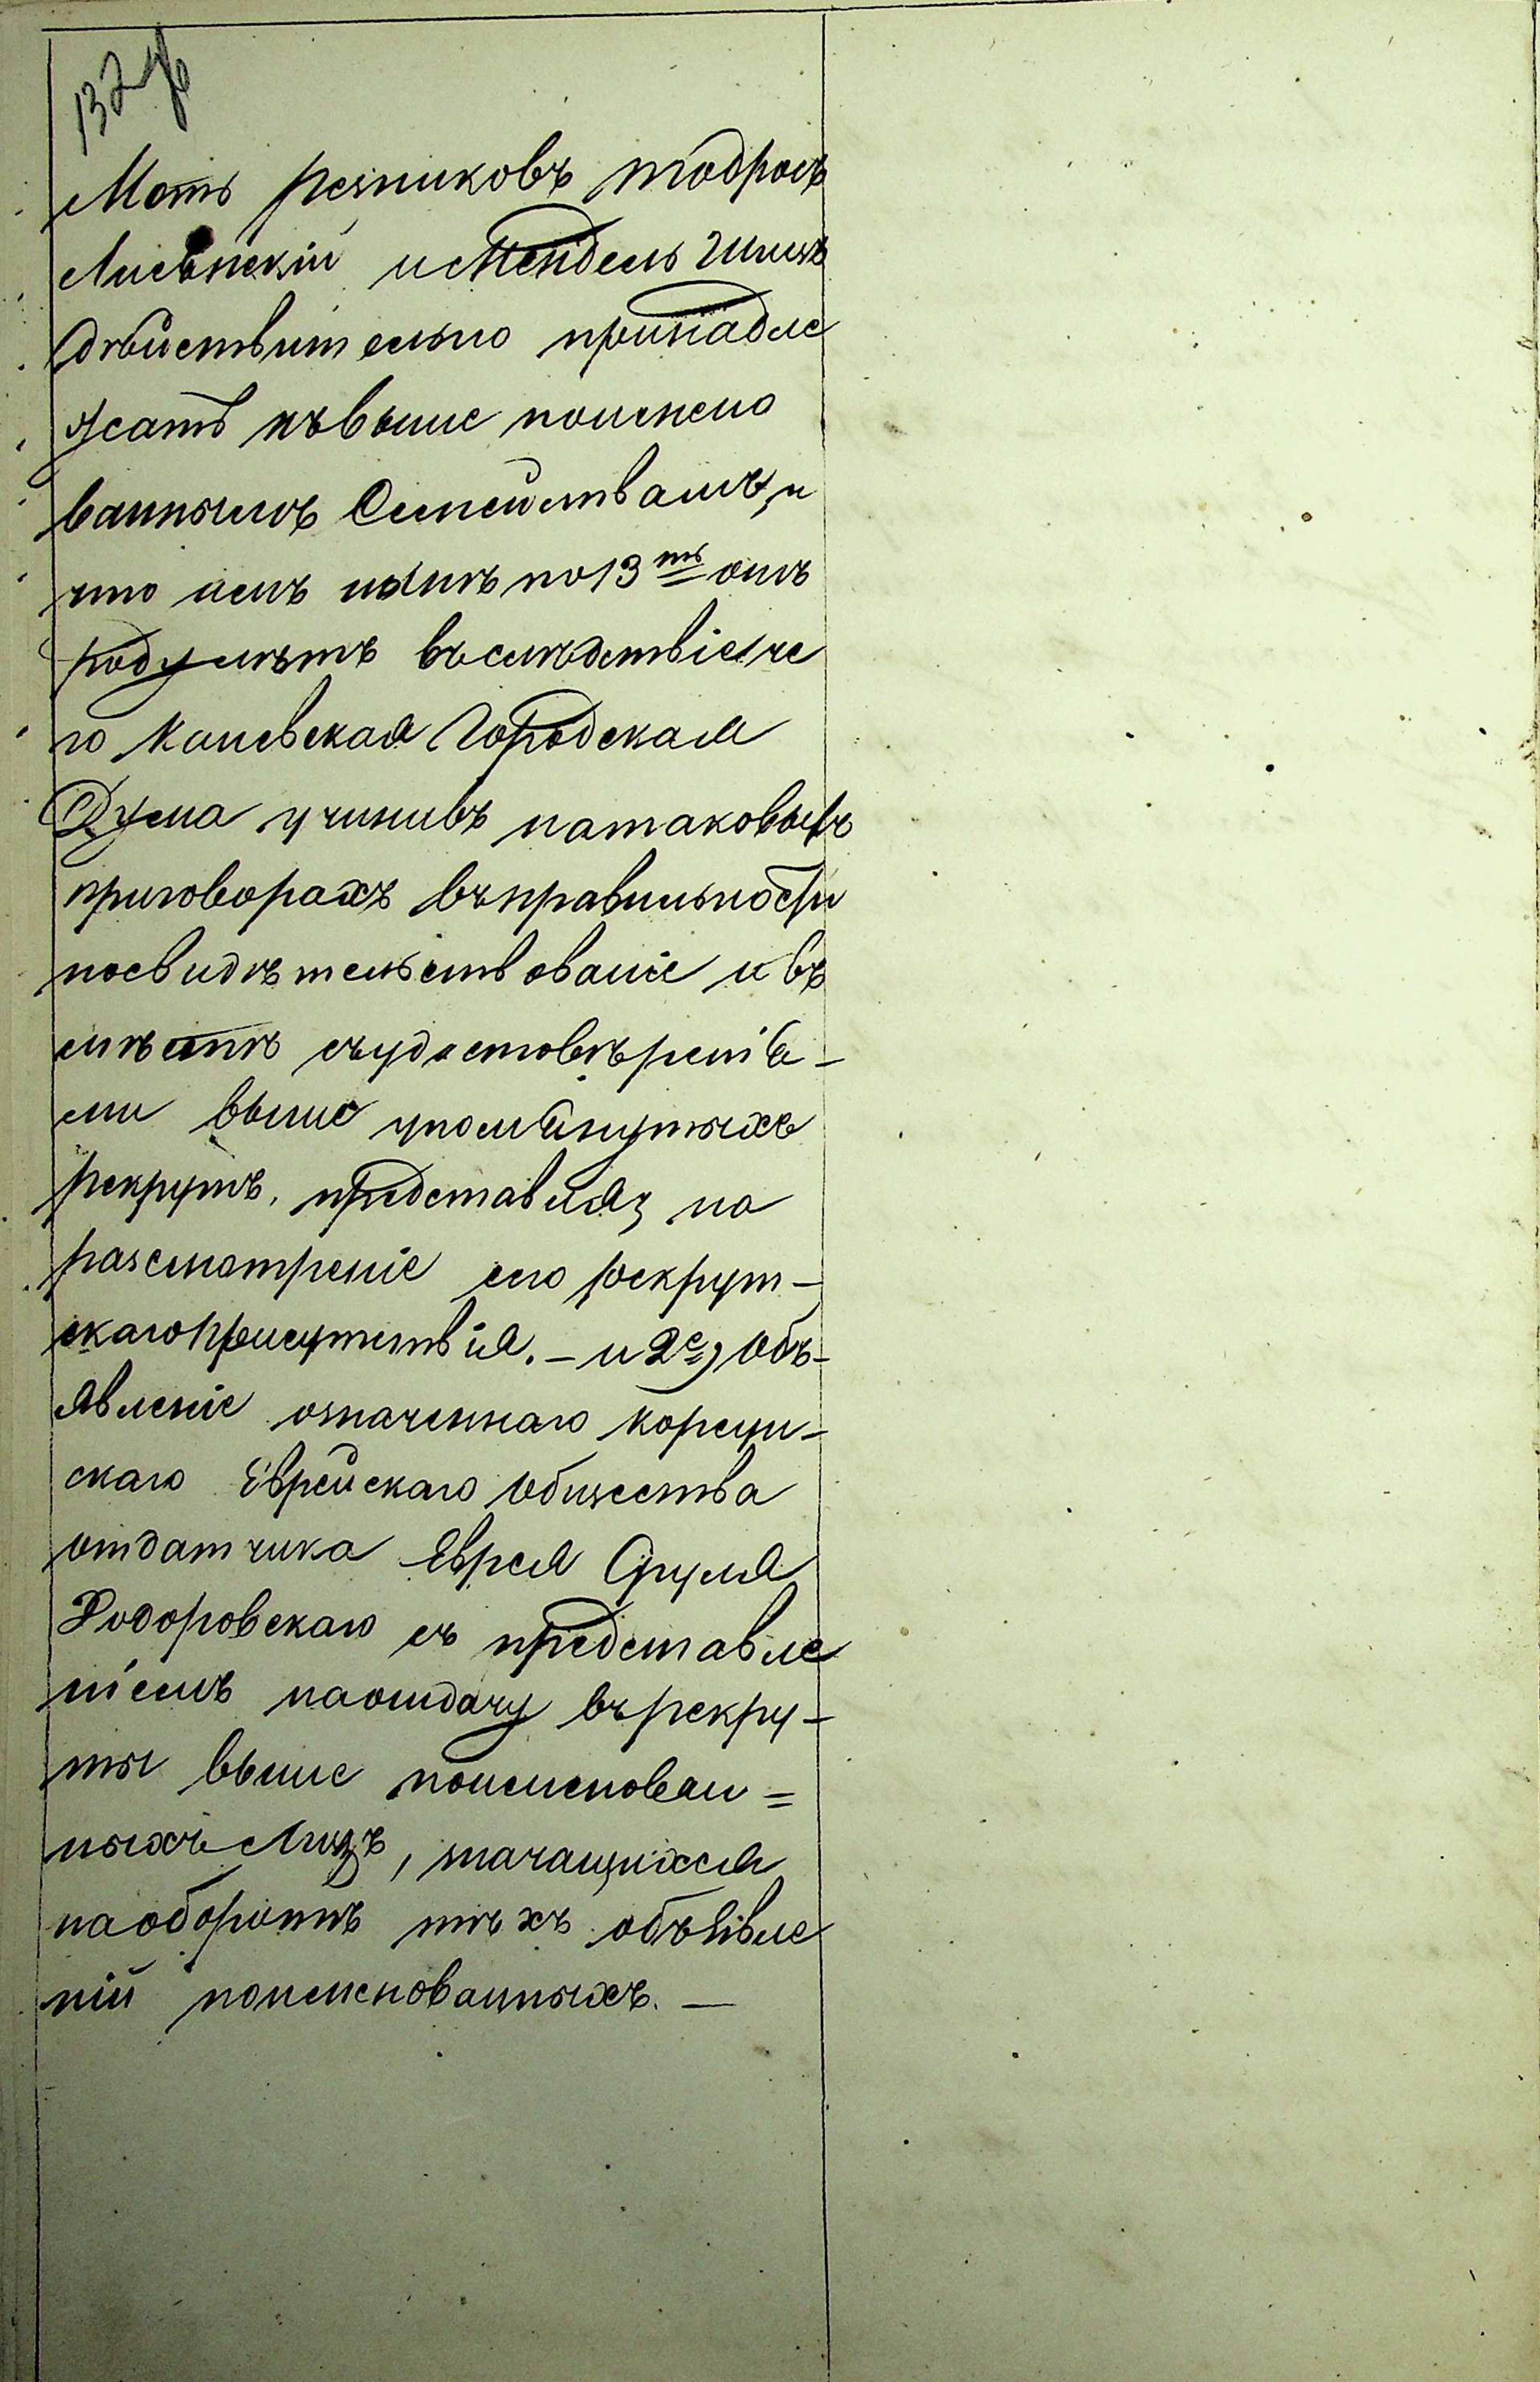 132
Моть резниковъ тодросъ
Лисѣнскій и Мендель
дѣйствительно принадле
жатъ къ выше поимено
ваннымъ Семействамъ, и
что имъ нынѣ по 13ть отъ
роду лѣтъ въ слѣдствіе че
го Каневская Городская
Дума учинивъ на таковыхъ
приговорахъ въ правильности
посвидѣтельствованіе и въ
мѣстѣ съ удостовѣренія-
ми выше упомянутыхъ
рекрутъ, представляя на
разсмотреніе его рекрут-
скаго присутствія. — и 2е, Объ-
явленіе означеннаго корсун-
скаго Еврейскаго общества
отдатчика Еврея Сруля
Федоровскаго съ представле
ніемъ на отдачу въ рекру-
ты выше поименован=
ныхъ Лицъ, значащихся
на оборотѣ тѣхъ объявле
ній поименованныхъ. —